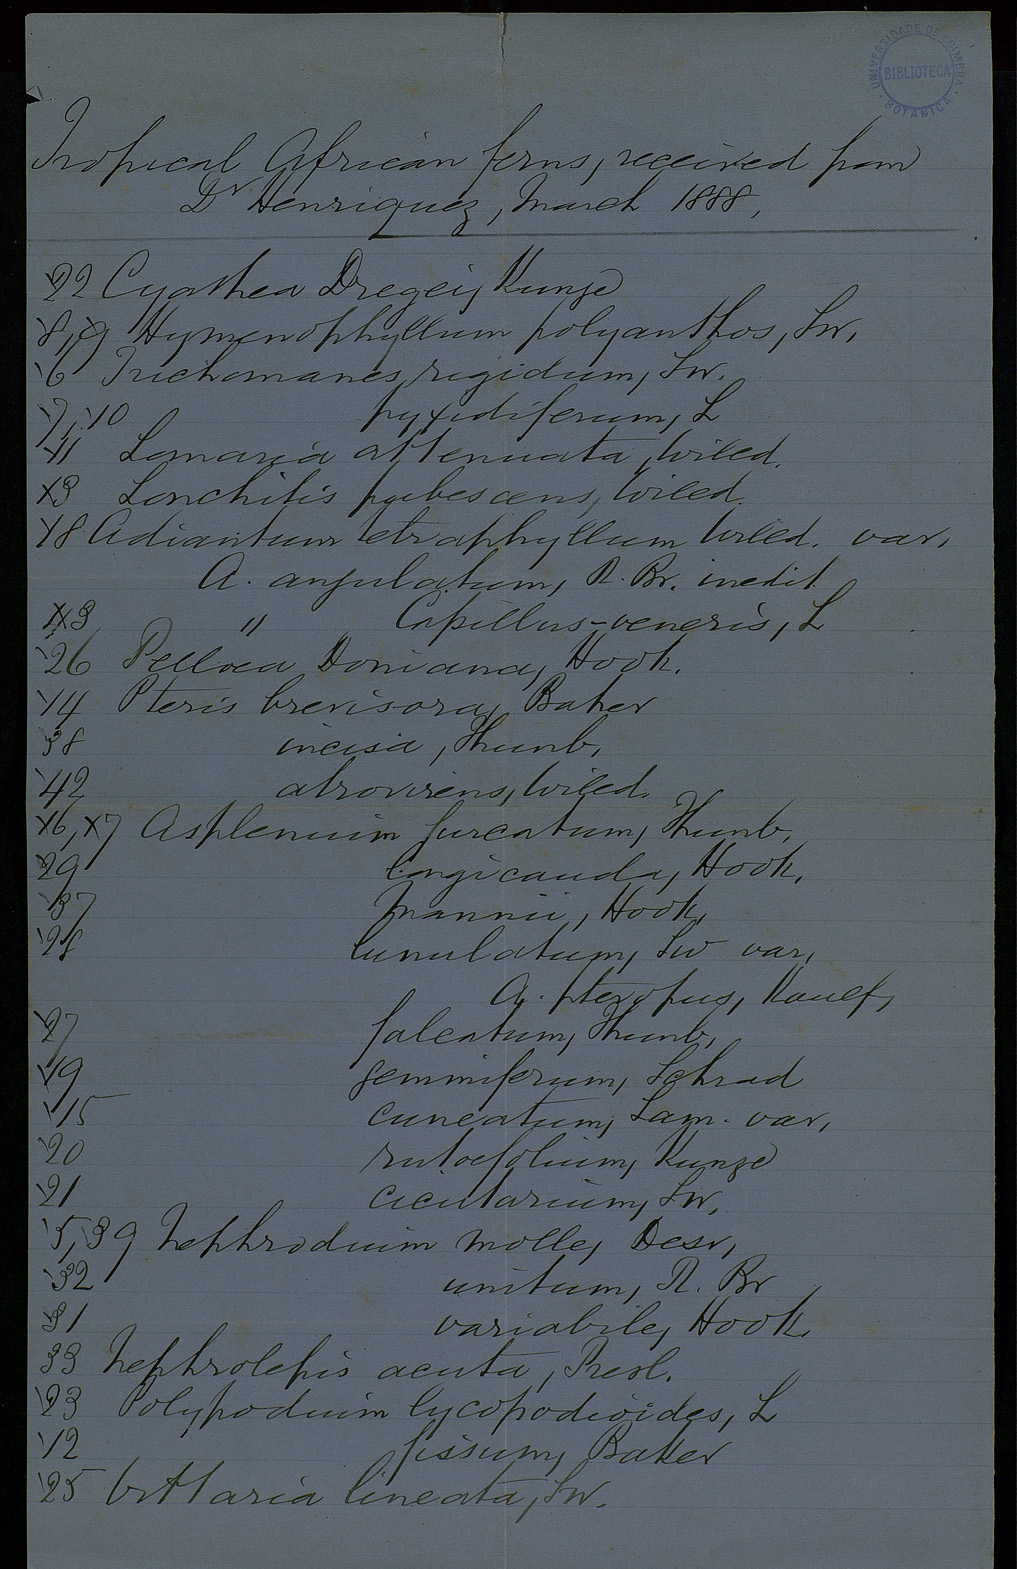 UNIVERSIDADE DE COIMBRA
BIBLIOTECA
BOTANICA
Tropical African ferns, received from
Dr Henriquez, March 1888,
22 Cyathea Dregei, Kunze
8, 9 Hymenophyllum polyanthos, Sw,
6 Trichomanes rigidum, Sw.
7, 10 pyxidiferum, L
11 Lomaria attenuata, Willd.
13 Lonchitis pubescens, Willd.
18 Adiantum tetraphyllum Willd. var,
A. angulatum, R. Br. inedit.
" Capillus-veneris, L
26 Pellaea Doniana, Hook.
14 Pteris brevisora, Baker
38 incisa, Thunb,
42 atrovirens, Willd.
16, 17 Asplenium furcatum, Thunb,
29 longicauda, Hook,
37 Mannii, Hook,
28 lunulatum, Sw var,
A. pteropus, Kaulf,
27 falcatum, Thunb,
19 gemmiferum, Schrad
15 cuneatum, Lam. var,
20 rutaefolium, Kunze
21 cicutarium, Sw,
5, 39 Nephrodium molle, Desv,
32 unitum, R. Br
31 variabile, Hook,
33 Nephrolepis acuta, Presl.
23 Polypodium lycopodioides, L
12 fissum, Baker
25 Vittaria lineata, Sw.